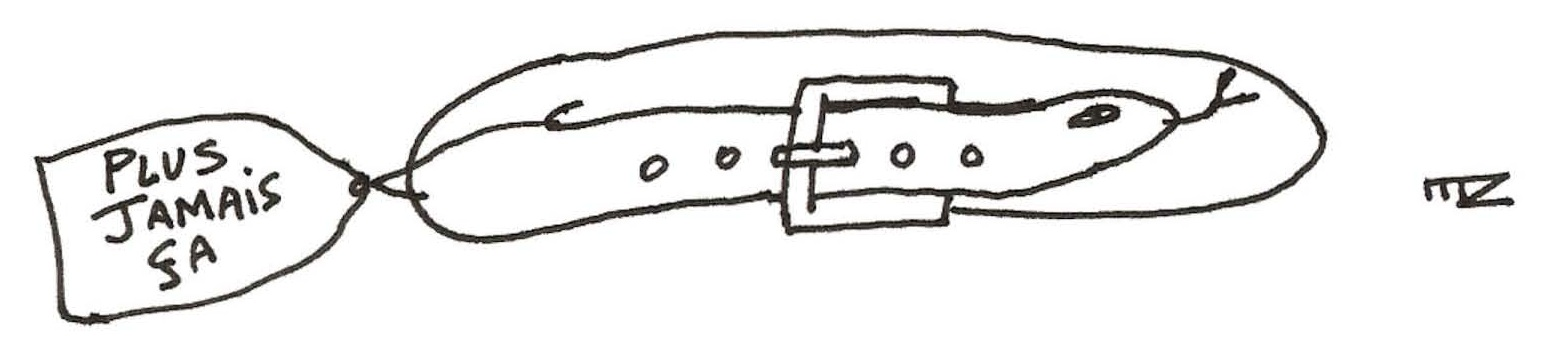 PLUS
JAMAiS
ÇA